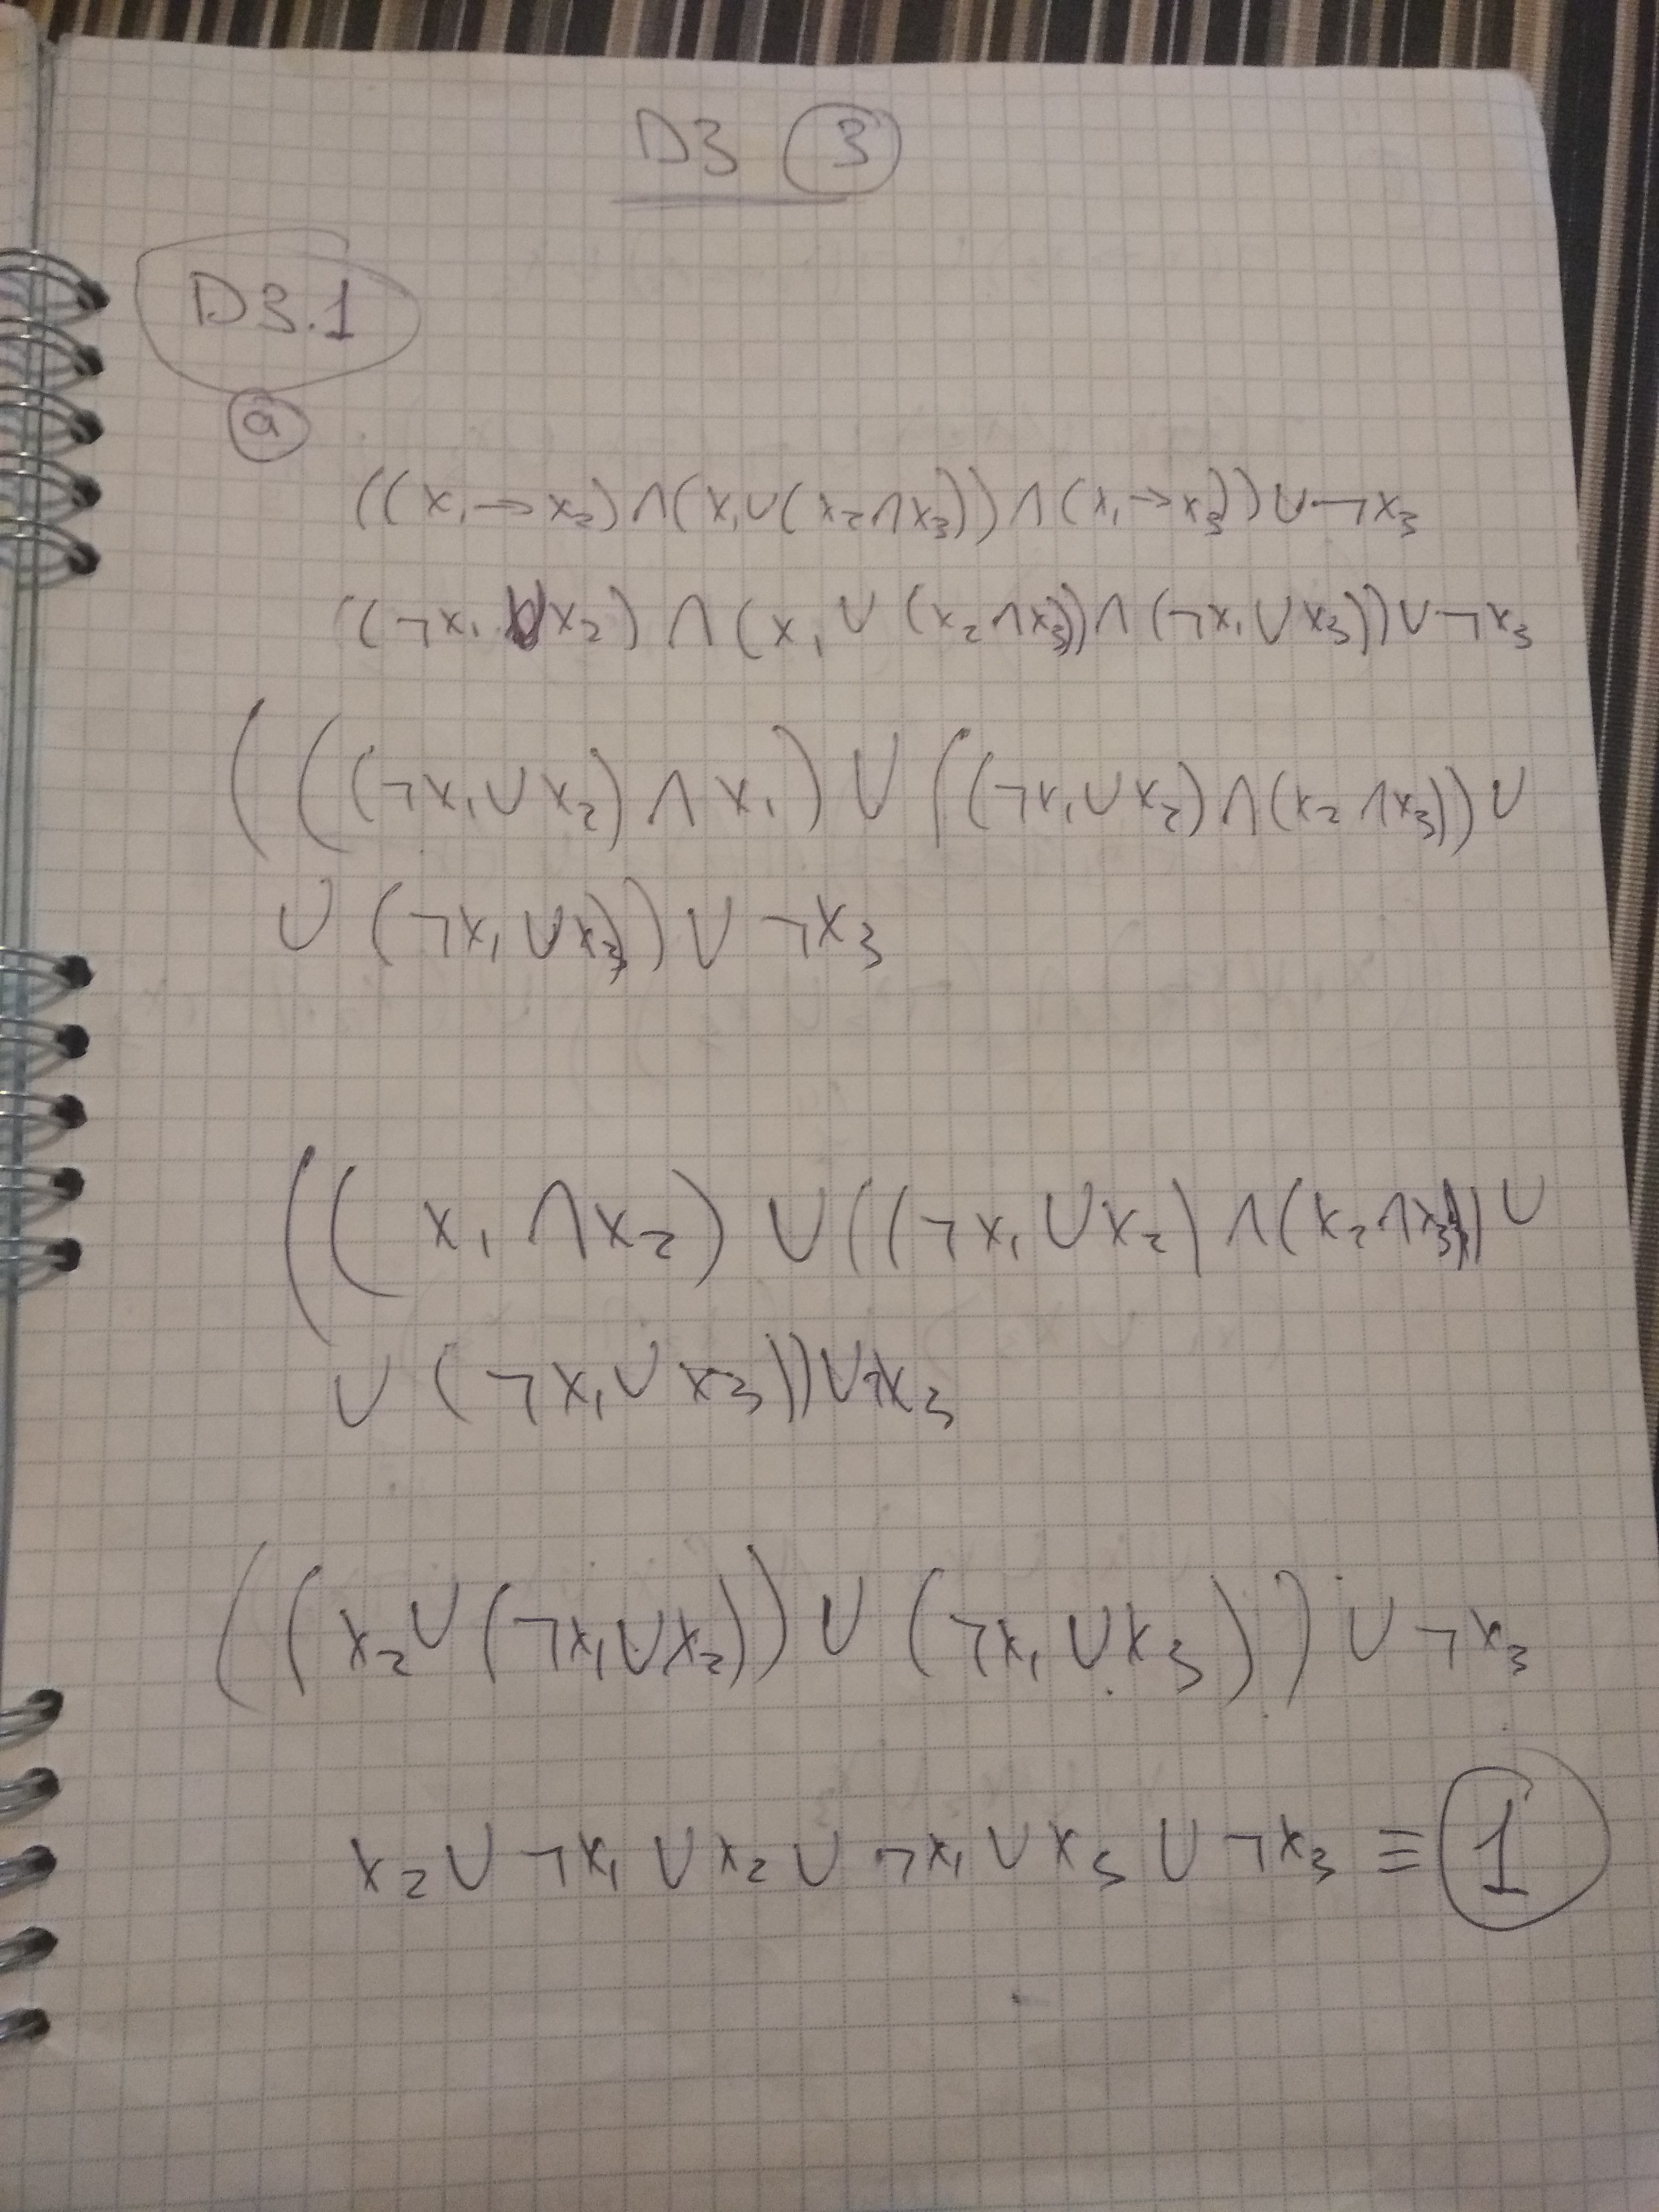 D3 3
D3.1
a
((x₁→x₂)∧(x₁∪(x₂∧x₃))∧(x₁→x₃))∪¬x₃
((¬x₁∪x₂)∧(x₁∪(x₂∧x₃))∧(¬x₁∪x₃))∪¬x₃
(((¬x₁∪x₂)∧x₁)∪((¬x₁∪x₂)∧(x₂∧x₃))∪
∪(¬x₁∪x₃))∪¬x₃
((x₁∧x₂)∪((¬x₁∪x₂)∧(x₂∧x₃))∪
∪(¬x₁∪x₃))∪¬x₃
((x₂∪(¬x₁∪x₂))∪(¬x₁∪x₃))∪¬x₃
x₂∪¬x₁∪x₂∪¬x₁∪x₃∪¬x₃≡1